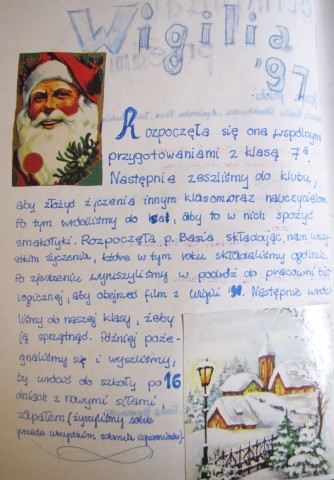 Wigilia
'97
Rozpoczęła się ona wspólnymi
przygotowaniami z klasą 7a.
Następnie zeszliśmy do klubu,
aby złożyć życzenia innym klasom oraz nauczycielom.
Po tym wróciliśmy do sal, aby to w nich spożyć
smakołyki. Rozpoczęła p. Basia składając nam wszy-
stkim życzenia, które w tym roku składaliśmy ogólnie.
Po zjedzeniu wyruszyliśmy w podróż do pracowni bio-
logicznej, aby obejrzeć film z Wigilii '90. Następnie wróci-
liśmy do naszej klasy, żeby
ją sprzątnąć. Później poże-
gnaliśmy się i wyszliśmy,
by wrócić do szkoły po 16
dniach z nowymi siłami,
zapałem (życzyliśmy sobie
przede wszystkim zdania egzaminów).